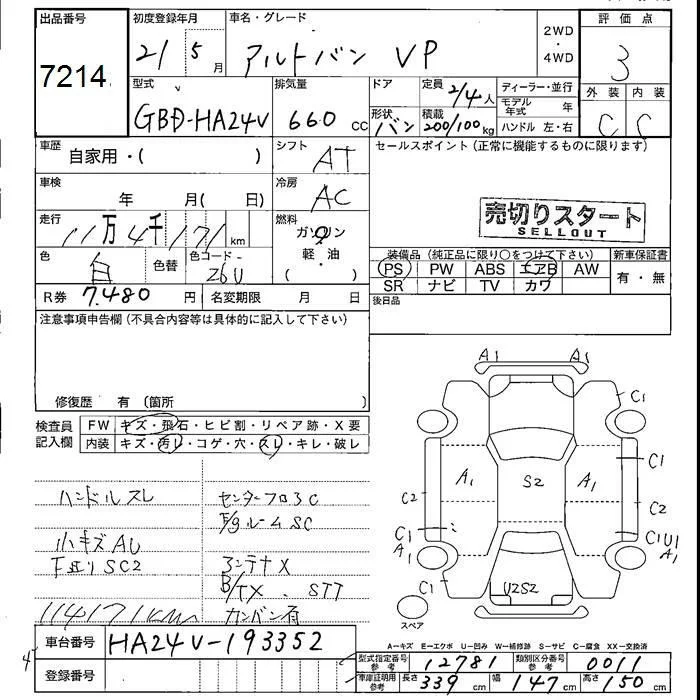 出品番号 初度登録年月 車名・グレード 2WD ・ 4WD 評価点
7214 21 5月 アルトバン VP 3
型式 排気量 ドア 定員 2/4人 ディーラー・並行 外装 内装
GBD-HA24V 660 cc 形状 バン 積載 200/100kg モデル年式 年 C C
ハンドル 左・右
車歴 自家用・( ) シフト AT セールスポイント(正常に機能するものに限ります)
車検 年 月( 日) 冷房 AC
売切りスタート
SELLOUT
走行 11万4千171km 燃料 ガソリン
軽・油
( )
色 白 色替 色コード 26U 装備品(純正品に限り○をつけて下さい) 新車保証書
PS PW ABS エアB AW 有・無
SR ナビ TV カワ
R券 7.480円 名変期限 月 日 後日品
注意事項申告欄(不具合内容等は具体的に記入して下さい)
修復歴 有 (箇所 )
検査員記入欄 FW キズ・飛石・ヒビ割・リペア跡・X要
内装 キズ・汚レ・コゲ・穴・スレ・キレ・破レ
ハンドルスレ センターフロアC
F/gルームSC
小キズAU アンテナX
下廻りSC2 B/TX . STT
114171km カンバン有
A1 A1
C1
C1
A1 S2 A1
C2 C2
C1 C1U1
A1 A1
C1 U2S2
スペア
A−キズ E−エクボ U−凹み W−補修跡 S−サビ C−腐食 XX−交換済
車台番号 HA24V-193352
型式指定番号 参考 12781 類別区分番号 参考 0011
登録番号
車庫証明用 参考 長さ 339cm 幅 147cm 高さ 150cm